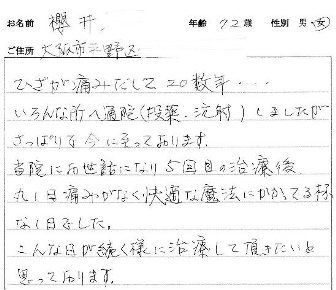 お名前 櫻井 年齢 72歳 性別 男・女
ご住所 大阪市平野区
ひざが痛みだして20数年・・・
いろんな所へ通院(投薬・注射)しましたが
さっぱりで今に至っております。
当院にお世話になり5回目の治療後
丸1日痛みがなく快適な魔法にかかってる様
な1日でした。
こんな日が続く様に治療して頂きたいと
思っております。